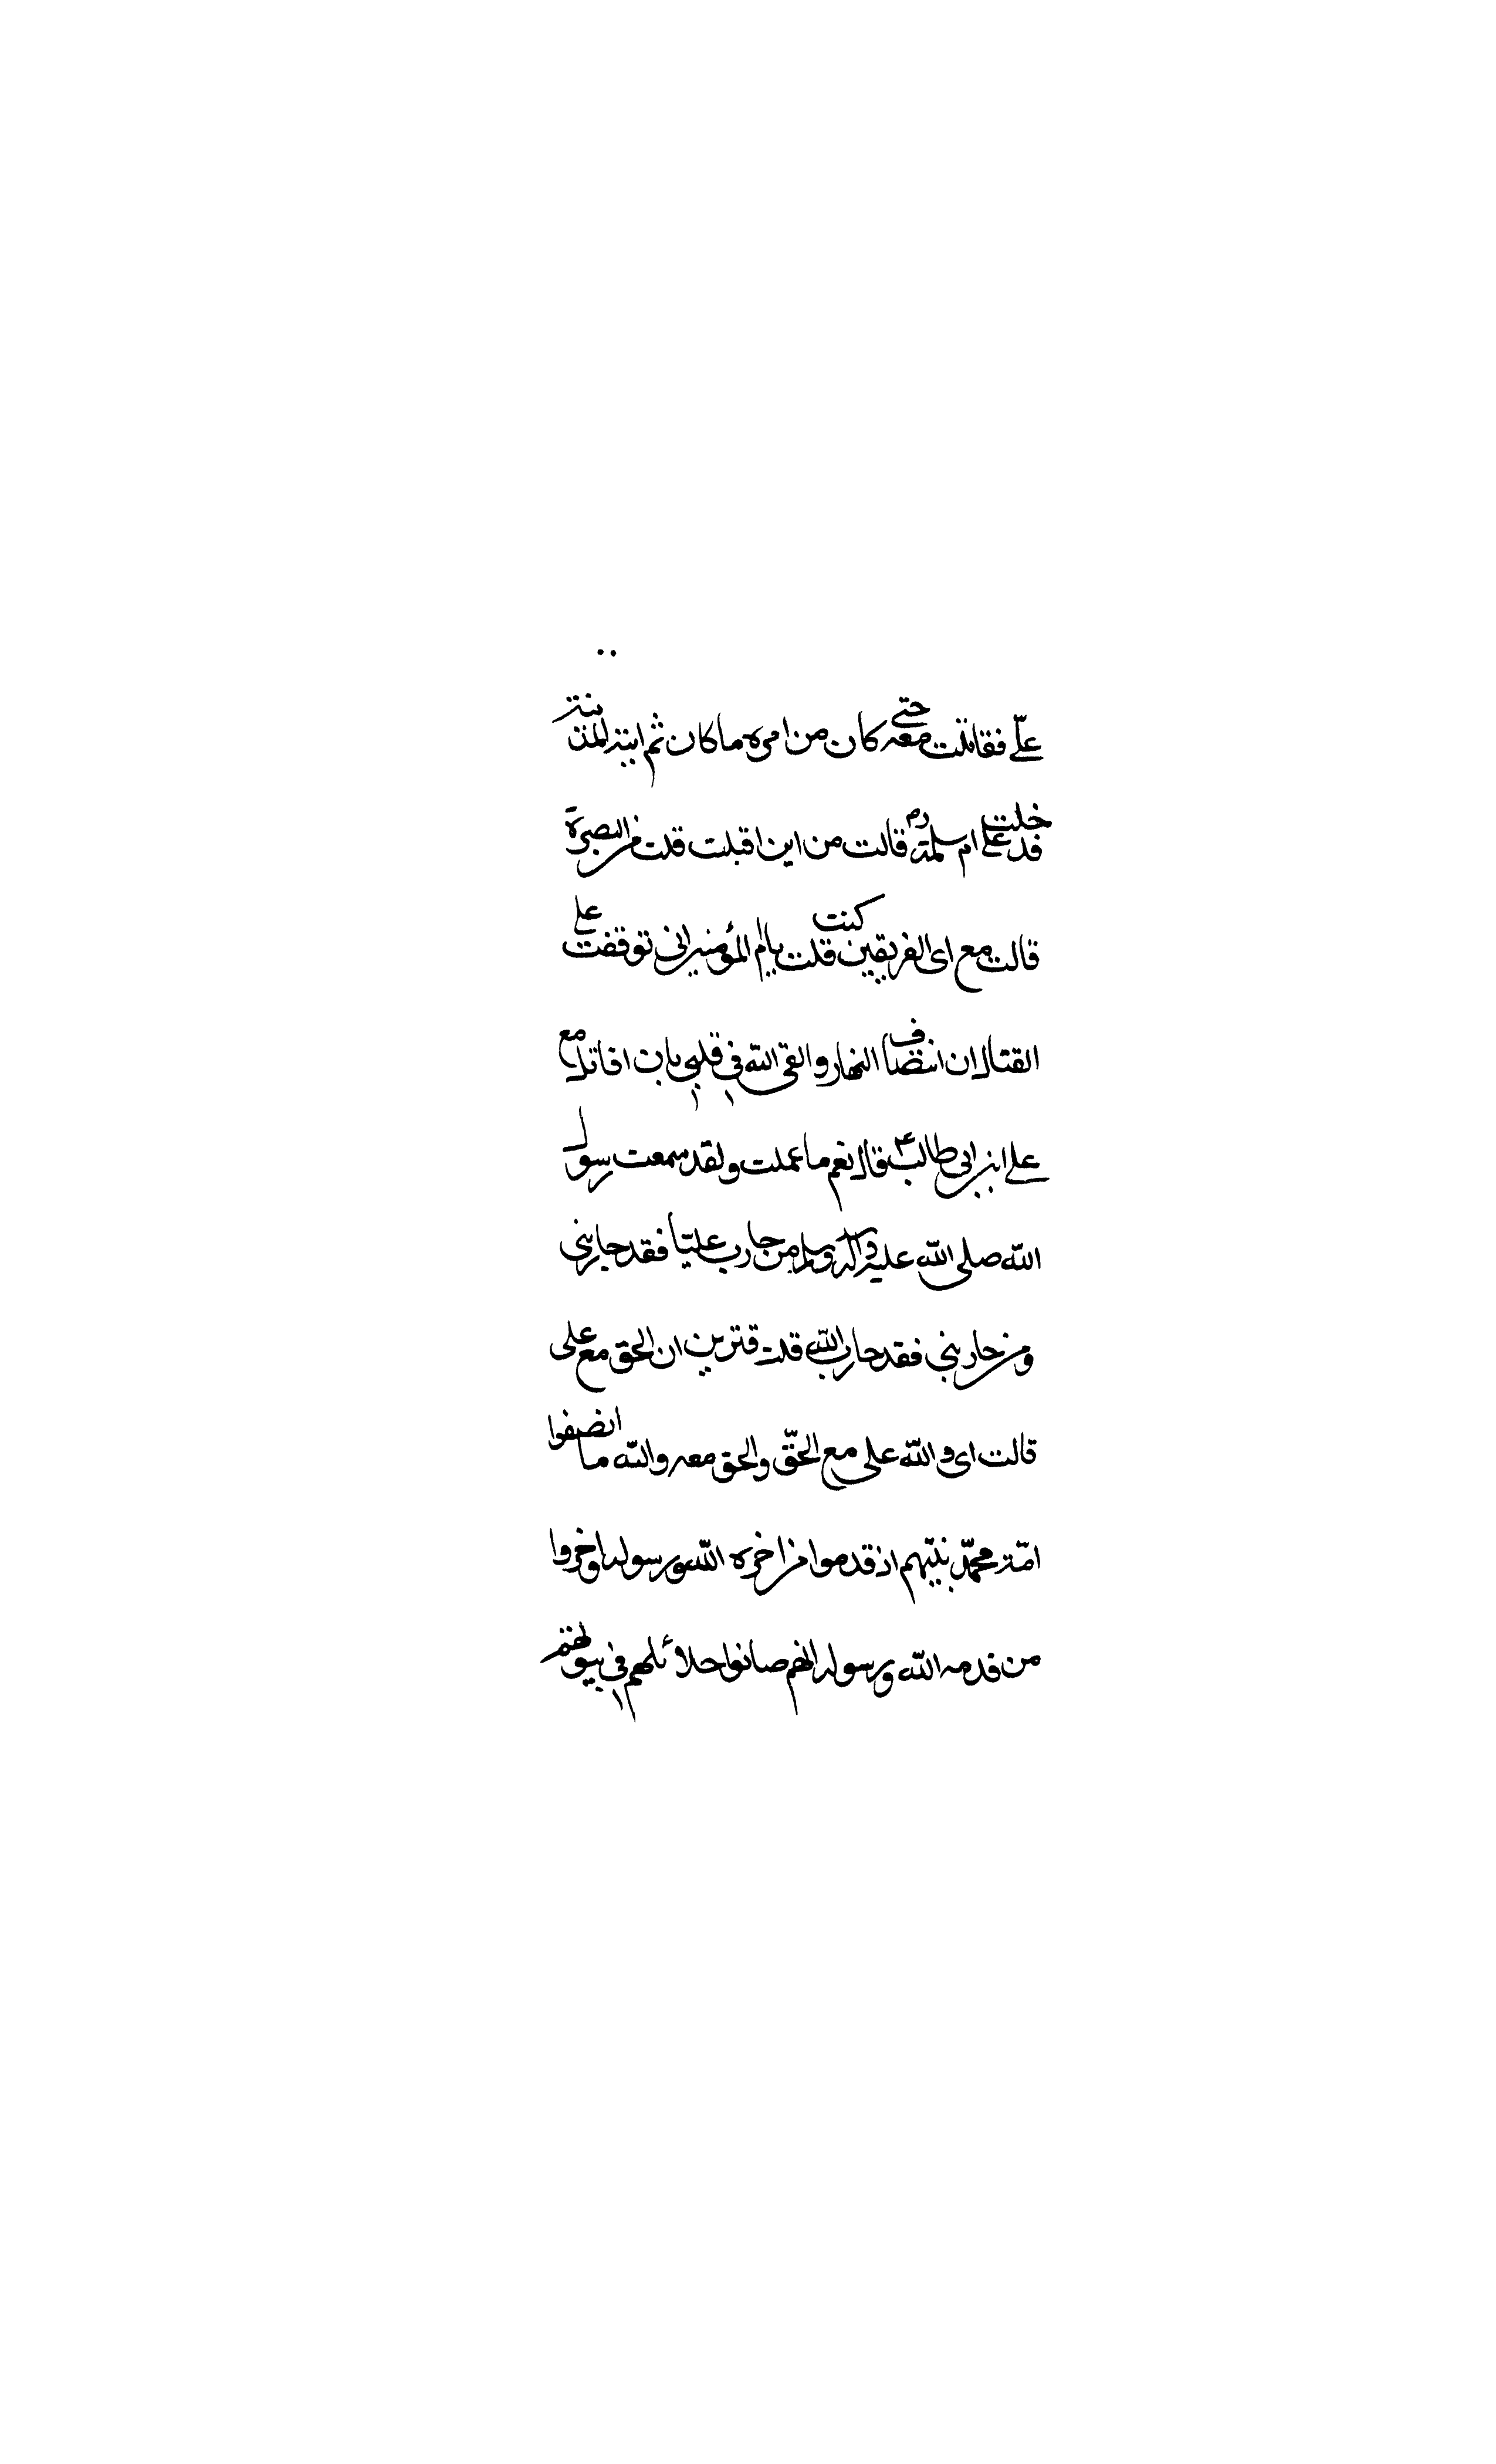 علّى فقاتلت معه حتى كان من امره ما كان ثم اتيت المدينة
فدخلت على ام سلمة رض قالت من اين اقبلت قلت من البصرة
قالت مع اى الفريقين كنت قلت يا ام المؤمنين انى توقفت على
القتال ان انتصاف النهار والقى الله فى قلبى بان اقاتل مع
على ابن ابى طالب ع قال نعم ما عملت ولقد سمعت رسول
الله صلى الله عليه واله وسلم من حارب عليّا فقد حاربنى
ومن حاربنى فقد حارب الله قلت فترين ان الحق مع على
قالت اى و الله على مع الحقّ والحق معه والله ما انصفوا
امّة محمّد نبيّهم اذ قدموا من اخره الله ورسوله واخروا
من قدمه الله ورسوله انهم صانوا حلائلهم فى بيوتهم